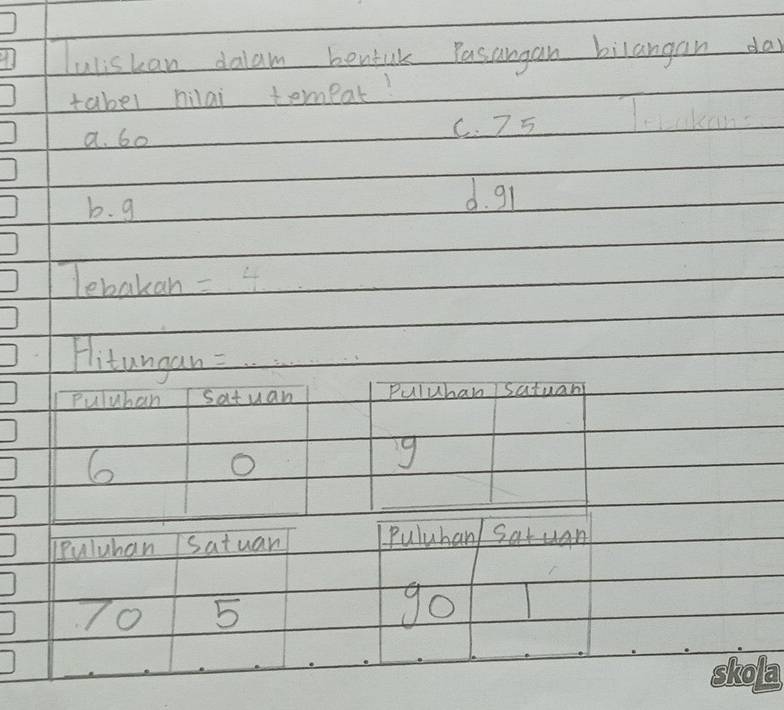 Tuliskan dalam bentuk Pasangan bilangan
tabel nilai tempat!
a. 60 c. 75
b. 9 d. 91
Tebakan = 4
Hitungan = .........
Puluhan Satuan Puluhan Satuan
6 0 9
Puluhan Satuan Puluhan Satuan
70 5 90 1
skola